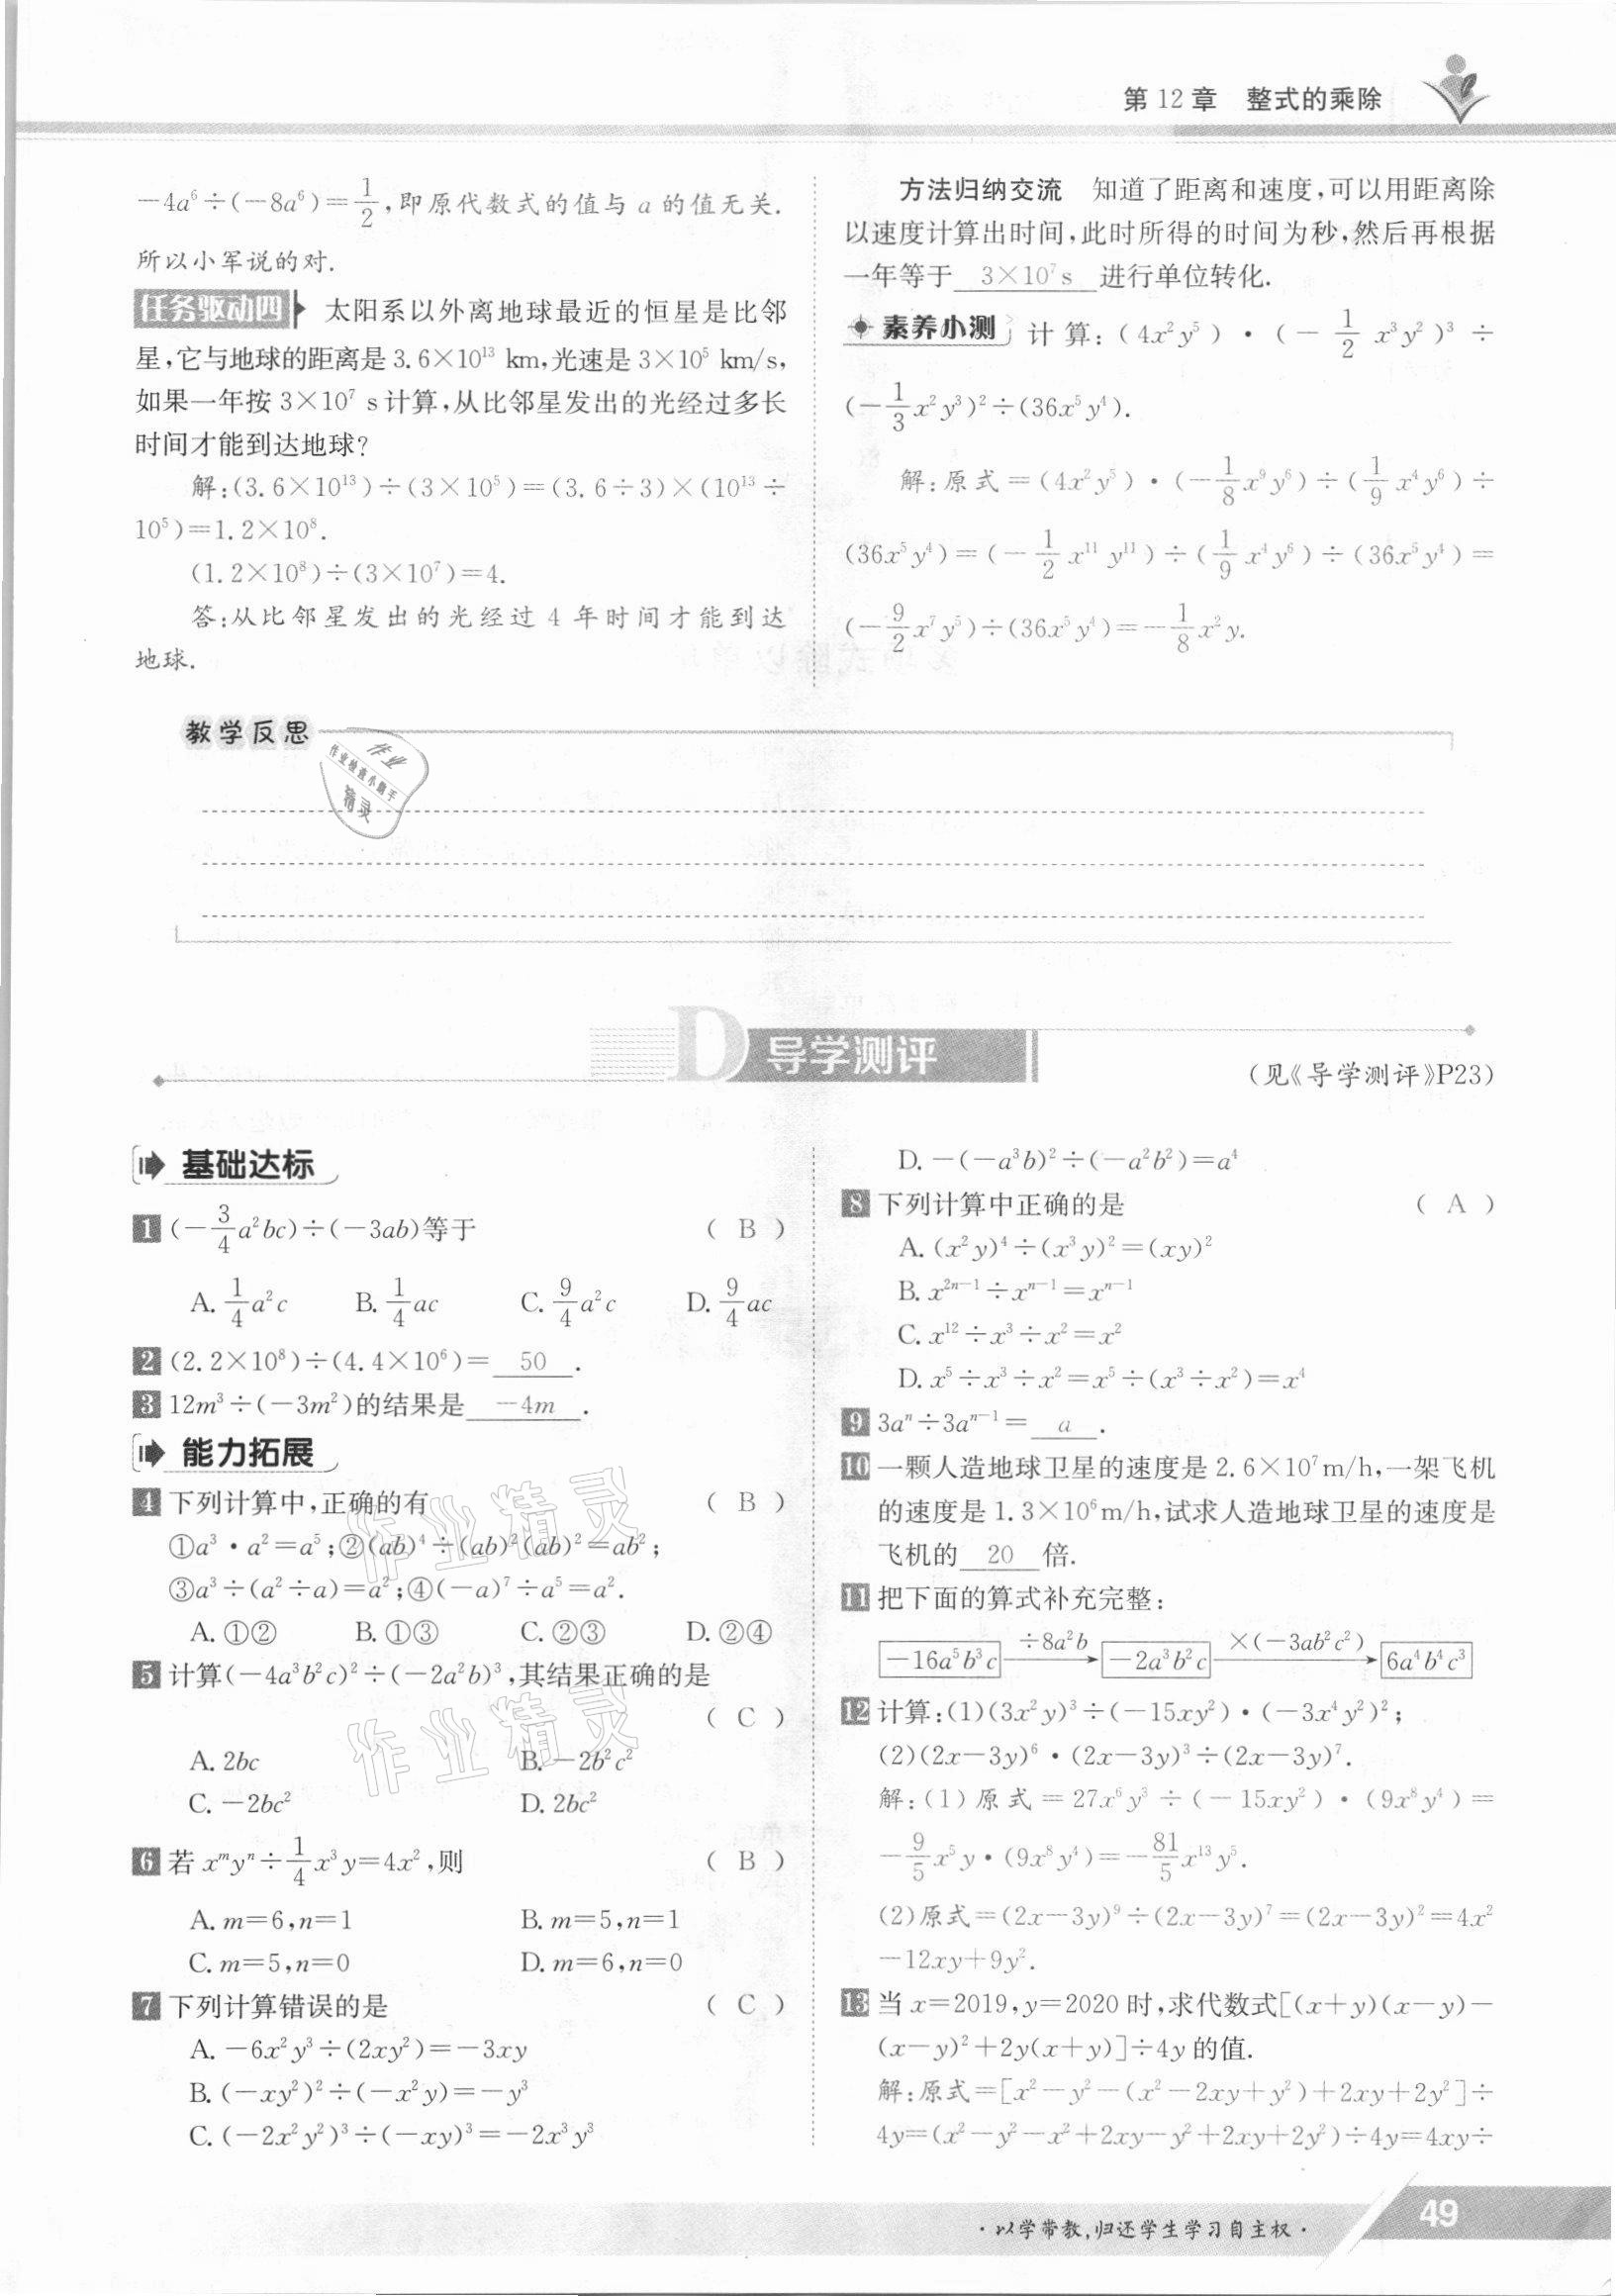 第12章 整式的乘除
-4a⁶÷(-8a⁶)=1/2,即原代数式的值与a的值无关.
所以小军说的对.
任务驱动四 太阳系以外离地球最近的恒星是比邻
星,它与地球的距离是3.6×10¹³ km,光速是3×10⁵ km/s,
如果一年按3×10⁷ s计算,从比邻星发出的光经过多长
时间才能到达地球?
解:(3.6×10¹³)÷(3×10⁵)=(3.6÷3)×(10¹³÷
10⁵)=1.2×10⁸.
(1.2×10⁸)÷(3×10⁷)=4.
答:从比邻星发出的光经过4年时间才能到达
地球.
方法归纳交流 知道了距离和速度,可以用距离除
以速度计算出时间,此时所得的时间为秒,然后再根据
一年等于 3×10⁷s 进行单位转化.
素养小测 计算:(4x²y⁵)·(-1/2 x³y²)³÷
(-1/3 x²y³)²÷(36x⁵y⁴).
解:原式=(4x²y⁵)·(-1/8 x⁹y⁶)÷(1/9 x⁴y⁶)÷
(36x⁵y⁴)=(-1/2 x¹¹y¹¹)÷(1/9 x⁴y⁶)÷(36x⁵y⁴)=
(-9/2 x⁷y⁵)÷(36x⁵y⁴)=-1/8 x²y.
教学反思
作业
作业检查小助手
精灵
D 导学测评
(见《导学测评》P23)
基础达标
1 (-3/4 a²bc)÷(-3ab)等于 ( B )
A. 1/4 a²c B. 1/4 ac C. 9/4 a²c D. 9/4 ac
2 (2.2×10⁸)÷(4.4×10⁶)= 50 .
3 12m³÷(-3m²)的结果是 -4m .
能力拓展
4 下列计算中,正确的有 ( B )
①a³·a²=a⁵;②(ab)⁴÷(ab)²(ab)²=ab²;
③a³÷(a²÷a)=a²;④(-a)⁷÷a⁵=a².
A.①② B.①③ C.②③ D.②④
5 计算(-4a³b²c)²÷(-2a²b)³,其结果正确的是
( C )
A. 2bc B. -2b²c²
C. -2bc² D. 2bc²
6 若xᵐyⁿ÷1/4 x³y=4x²,则 ( B )
A. m=6,n=1 B. m=5,n=1
C. m=5,n=0 D. m=6,n=0
7 下列计算错误的是 ( C )
A. -6x²y³÷(2xy²)=-3xy
B. (-xy²)²÷(-x²y)=-y³
C. (-2x²y²)³÷(-xy)³=-2x³y³
D. -(-a³b)²÷(-a²b²)=a⁴
8 下列计算中正确的是 ( A )
A. (x²y)⁴÷(x³y)²=(xy)²
B. x²ⁿ⁻¹÷xⁿ⁻¹=xⁿ⁻¹
C. x¹²÷x³÷x²=x²
D. x⁵÷x³÷x²=x⁵÷(x³÷x²)=x⁴
9 3aⁿ÷3aⁿ⁻¹= a .
10 一颗人造地球卫星的速度是2.6×10⁷m/h,一架飞机
的速度是1.3×10⁶m/h,试求人造地球卫星的速度是
飞机的 20 倍.
11 把下面的算式补充完整:
-16a⁵b³c ÷8a²b -2a³b²c ×(-3ab²c²) 6a⁴b⁴c³
12 计算:(1)(3x²y)³÷(-15xy²)·(-3x⁴y²)²;
(2)(2x-3y)⁶·(2x-3y)³÷(2x-3y)⁷.
解:(1)原式=27x⁶y³÷(-15xy²)·(9x⁸y⁴)=
-9/5 x⁵y·(9x⁸y⁴)=-81/5 x¹³y⁵.
(2)原式=(2x-3y)⁹÷(2x-3y)⁷=(2x-3y)²=4x²
-12xy+9y².
13 当x=2019,y=2020时,求代数式[(x+y)(x-y)-
(x-y)²+2y(x+y)]÷4y的值.
解:原式=[x²-y²-(x²-2xy+y²)+2xy+2y²]÷
4y=(x²-y²-x²+2xy-y²+2xy+2y²)÷4y=4xy÷
作业精灵
作业精灵
·以学带教,归还学生学习自主权·
49